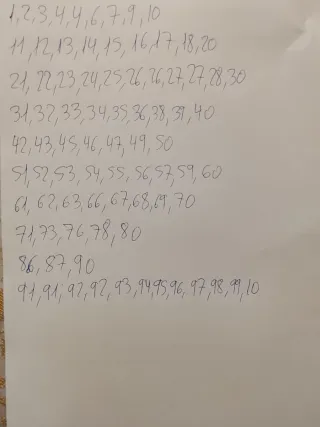 1,2,3,4,4,6,7,9,10
11,12,13,14,15,16,17,18,20
21,22,23,24,25,26,26,27,27,28,30
31,32,33,34,35,36,38,39,40
42,43,45,46,47,49,50
51,52,53,54,55,56,57,59,60
61,62,63,66,67,68,69,70
71,73,76,78,80
86,87,90
91,91,92,92,93,94,95,96,97,98,99,10